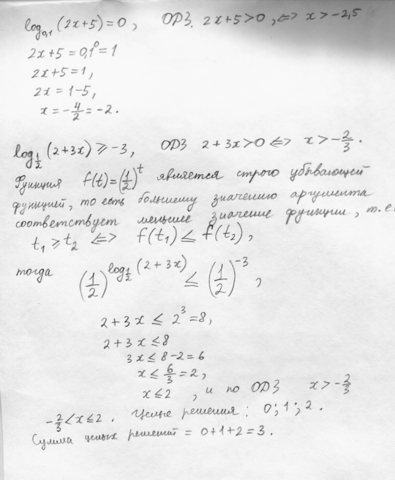 log₀,₁(2x+5)=0, ОДЗ. 2x+5>0, ⇔ x>-2,5
2x+5=0,1⁰=1
2x+5=1,
2x=1-5,
x=-4/2=-2.
log_{1/2}(2+3x)⩾-3, ОДЗ 2+3x>0 ⇔ x>-2/3.
Функция f(t)=(1/2)^t является строго убывающей
функцией, то есть большему значению аргумента
соответствует меньшее значение функции, т.е
t₁⩾t₂ ⇔ f(t₁)≤f(t₂),
тогда (1/2)^{log_{1/2}(2+3x)} ≤ (1/2)^{-3},
2+3x≤2³=8,
2+3x≤8
3x≤8-2=6
x≤6/3=2,
x≤2, и по ОДЗ x>-2/3
-2/3<x≤2. Целые решения: 0; 1; 2.
Сумма целых решений = 0+1+2=3.